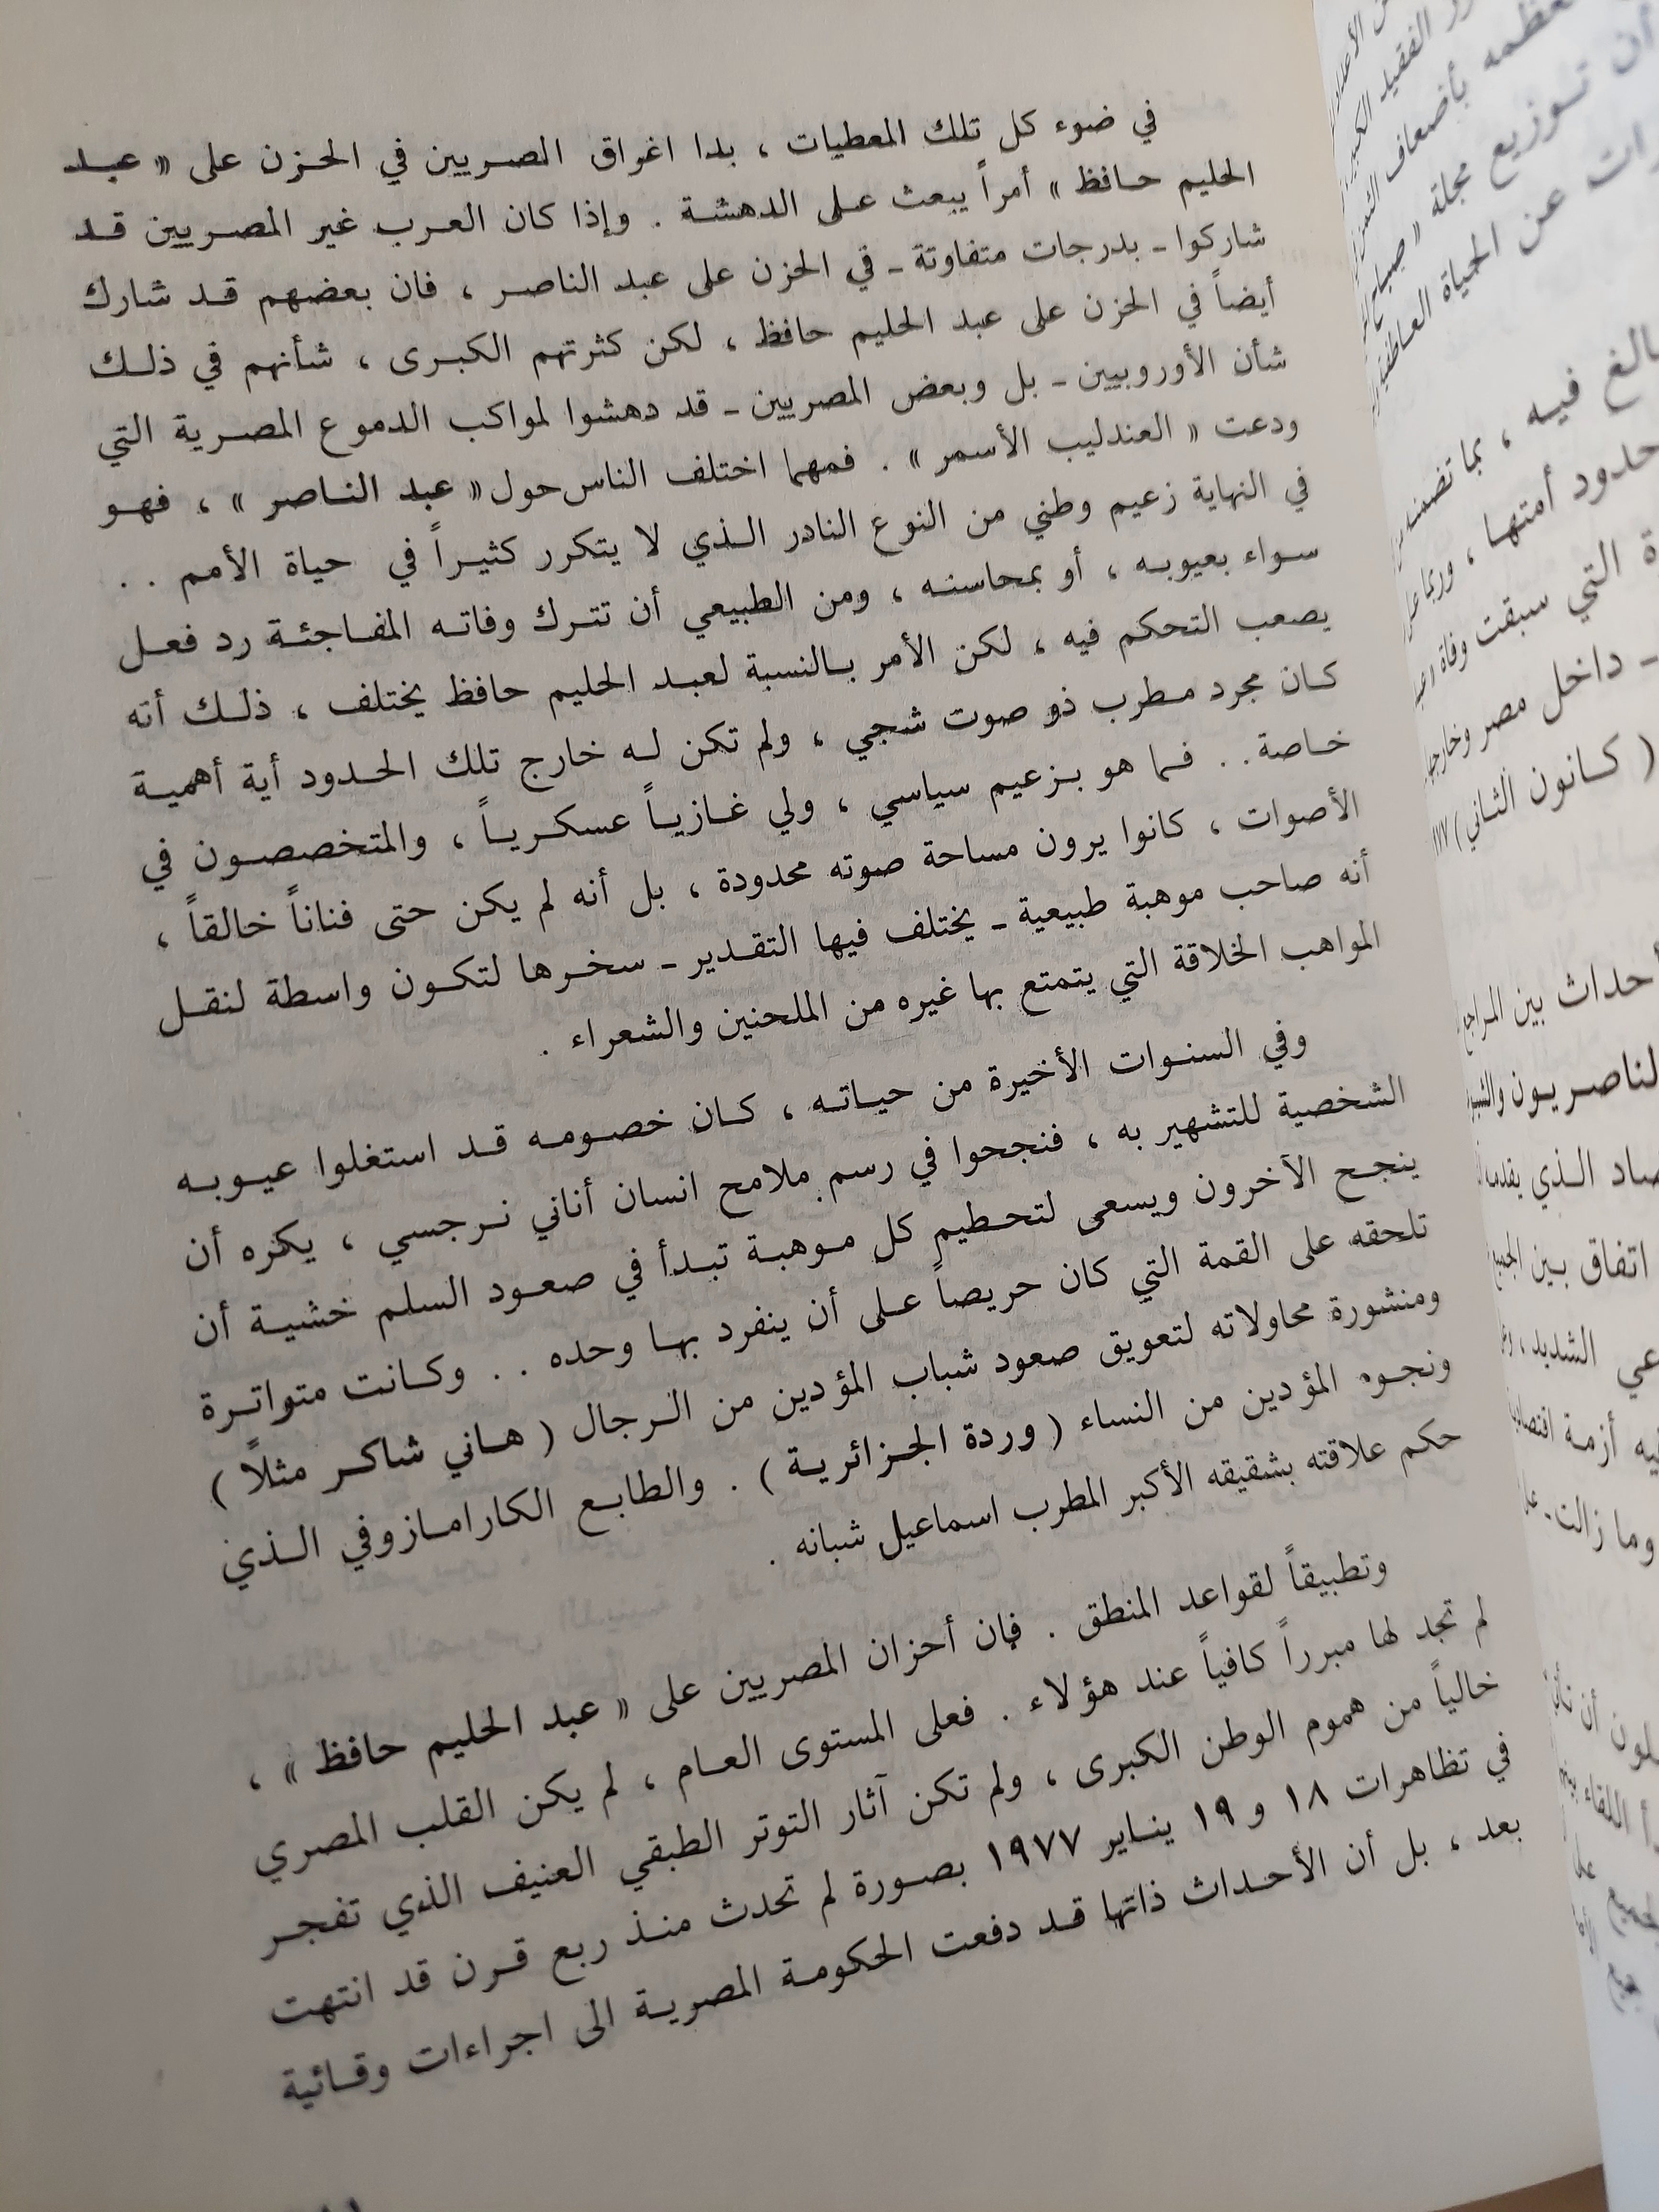 في ضوء كل تلك المعطيات ، بدا اغراق المصريين في الحزن على « عبد
الحليم حافظ » أمراً يبعث على الدهشة . وإذا كان العرب غير المصريين قد
شاركوا ـ بدرجات متفاوتة ـ في الحزن على عبد الناصر ، فان بعضهم قد شارك
أيضاً في الحزن على عبد الحليم حافظ ، لكن كثرتهم الكبرى ، شأنهم في ذلك
شأن الأوروبيين ـ بل وبعض المصريين ـ قد دهشوا لمواكب الدموع المصرية التي
ودعت « العندليب الأسمر » . فمهما اختلف الناس حول « عبد الناصر » ، فهو
في النهاية زعيم وطني من النوع النادر الذي لا يتكرر كثيراً في حياة الأمم . .
سواء بعيوبه ، أو بمحاسنه ، ومن الطبيعي أن تترك وفاته المفاجئة رد فعل
يصعب التحكم فيه ، لكن الأمر بالنسبة لعبد الحليم حافظ يختلف ، ذلك أنه
كان مجرد مطرب ذو صوت شجي ، ولم تكن له خارج تلك الحدود أية أهمية
خاصة . . فما هو بزعيم سياسي ، ولي غازياً عسكرياً ، والمتخصصون في
الأصوات ، كانوا يرون مساحة صوته محدودة ، بل أنه لم يكن حتى فناناً خالقاً ،
أنه صاحب موهبة طبيعية ـ يختلف فيها التقدير ـ سخرها لتكون واسطة لنقل
المواهب الخلاقة التي يتمتع بها غيره من الملحنين والشعراء .
وفي السنوات الأخيرة من حياته ، كان خصومه قد استغلوا عيوبه
الشخصية للتشهير به ، فنجحوا في رسم ملامح انسان أناني نرجسي ، يكره أن
ينجح الآخرون ويسعى لتحطيم كل موهبة تبدأ في صعود السلم خشية أن
تلحقه على القمة التي كان حريصاً على أن ينفرد بها وحده . . وكانت متواترة
ومنشورة محاولاته لتعويق صعود شباب المؤدين من الرجال ( هاني شاكر مثلاً )
ونجوم المؤدين من النساء ( وردة الجزائرية ) . والطابع الكارامازوفي الذي
حكم علاقته بشقيقه الأكبر المطرب اسماعيل شبانه .
وتطبيقاً لقواعد المنطق . فإن أحزان المصريين على « عبد الحليم حافظ » ،
لم تجد لها مبرراً كافياً عند هؤلاء . فعلى المستوى العام ، لم يكن القلب المصري
خالياً من هموم الوطن الكبرى ، ولم تكن آثار التوتر الطبقي العنيف الذي تفجر
في تظاهرات ١٨ و ١٩ يناير ١٩٧٧ بصورة لم تحدث منذ ربع قرن قد انتهت
بعد ، بل أن الأحداث ذاتها قد دفعت الحكومة المصرية الى اجراءات وقائية
الفقيد
بأضعاف
أن توزيع مجلة « صباح
عن الحياة العاطفية
فيه ، بما تضمنه
حدود أمتها ، وربما
التي سبقت وفاة
ـ داخل مصر وخارجها
( كانون الثاني )
أحداث بين
الناصريون
الذي
اتفاق بين
الشديد ،
فيه أزمة
وما زالت ـ
أن
اللقاء